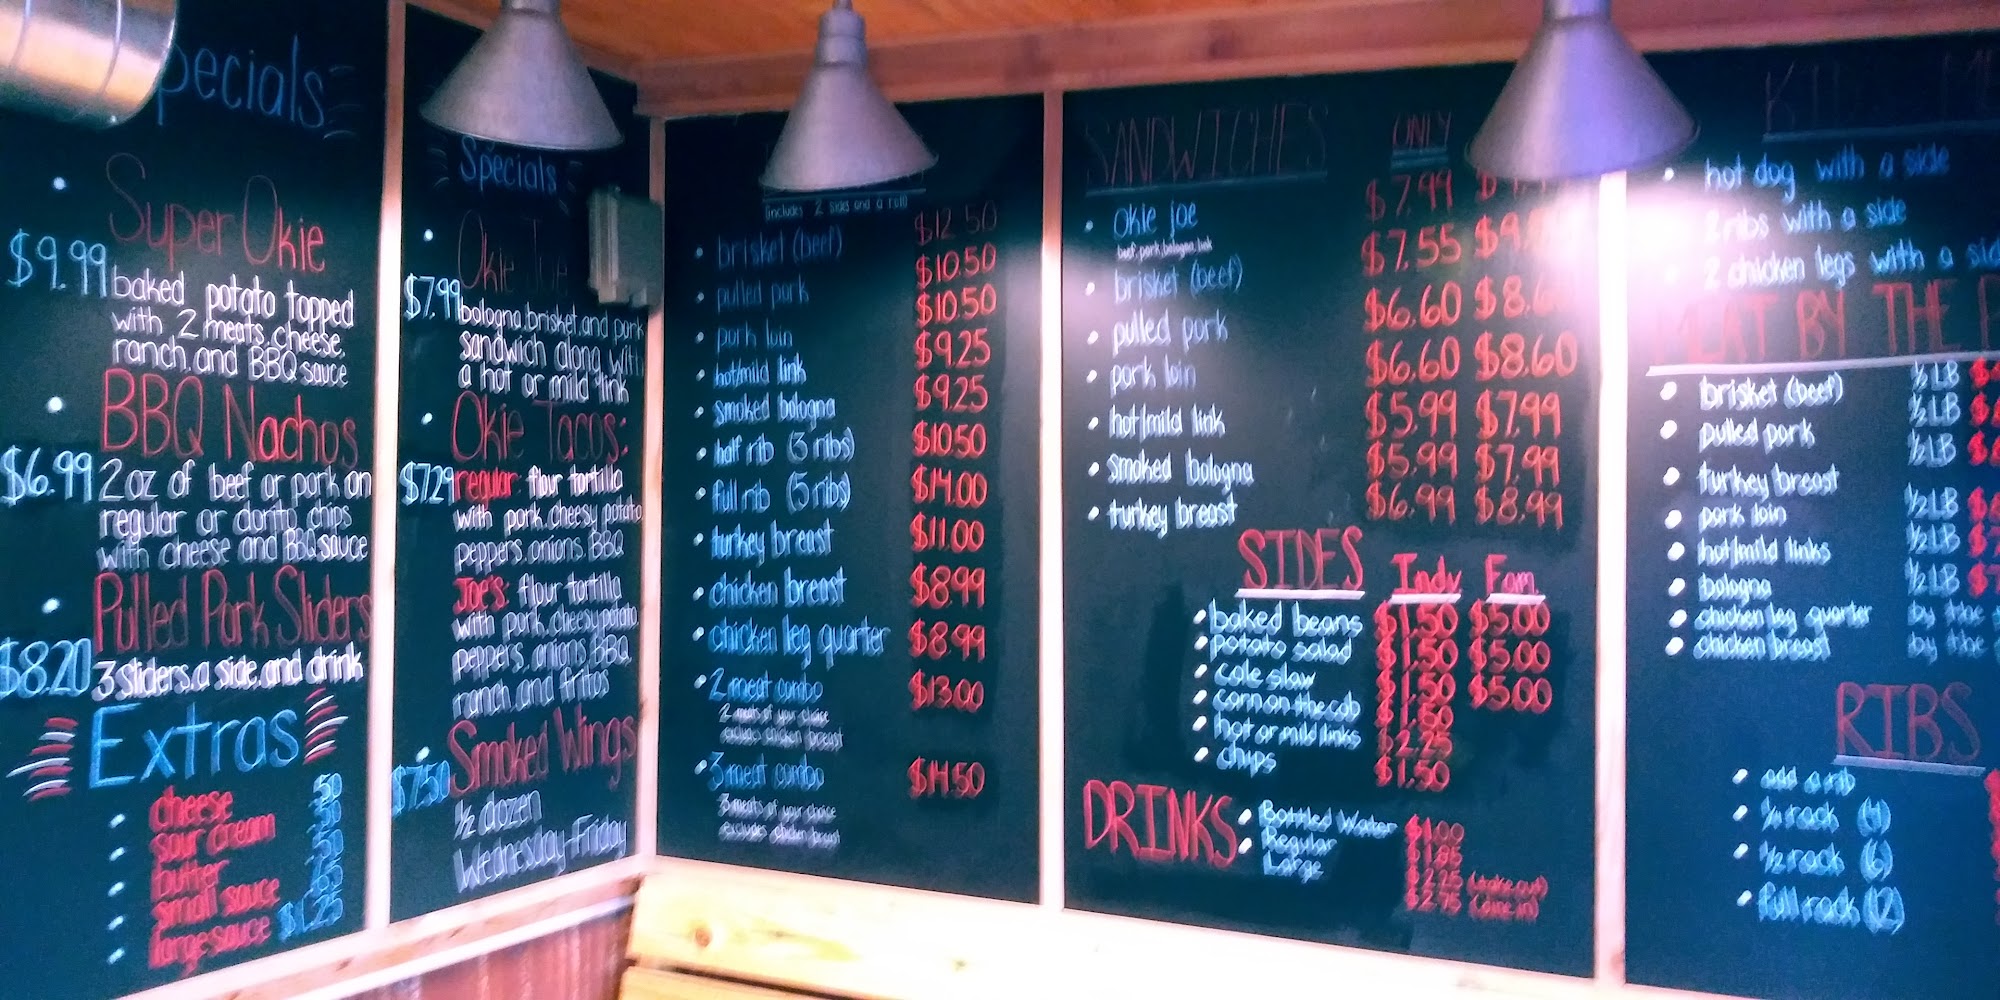 Specials
Super Okie
$9.99 baked potato topped
with 2 meats, cheese,
ranch, and BBQ sauce
BBQ Nachos
$6.99 2 oz of beef or pork on
regular or dorito chips
with cheese and BBQ sauce
Pulled Pork Sliders
$8.20 3 sliders, a side, and drink
Extras
cheese .50
sour cream
butter
small sauce
large sauce $1.25
Specials
Okie Joe
$7.99 bologna, brisket, and pork
sandwich along with
a hot or mild link
Okie Tacos:
$7.29 regular: flour tortilla
with pork, cheesy potato,
peppers, onions, BBQ
Joe's: flour tortilla
with pork, cheesy potato,
peppers, onions, BBQ,
ranch, and fritos
Smoked Wings
$7.50 ½ dozen
Wednesday-Friday
(includes 2 sides and a roll)
brisket (beef) $12.50
pulled pork $10.50
pork loin $10.50
hot/mild link $9.25
smoked bologna $9.25
half rib (3 ribs) $10.50
full rib (5 ribs) $14.00
turkey breast $11.00
chicken breast $8.99
chicken leg quarter $8.99
2 meat combo $13.00
2 meats of your choice
excludes chicken breast
3 meat combo $14.50
3 meats of your choice
excludes chicken breast
SANDWICHES ONLY
okie joe $7.99
beef, pork, bologna, link
brisket (beef) $7.55
pulled pork $6.60
pork loin $6.60 $8.60
hot/mild link $5.99 $7.99
smoked bologna $5.99 $7.99
turkey breast $6.99 $8.99
SIDES Indv Fam
baked beans $1.50 $5.00
potato salad $1.50 $5.00
cole slaw $1.50 $5.00
corn on the cob $1.50
hot or mild links $2.25
chips $1.50
DRINKS
Bottled Water $1.00
Regular $1.85
Large $2.25 (take out)
$2.75 (dine in)
hot dog with a side
2 ribs with a side
2 chicken legs with a side
MEAT BY THE
brisket (beef) ½ LB
pulled pork ½ LB
turkey breast ½ LB
pork loin ½ LB
hot/mild links ½ LB
bologna ½ LB
chicken leg quarter by the
chicken breast by the
RIBS
add a rib
¼ rack (4)
½ rack (6)
full rack (12)